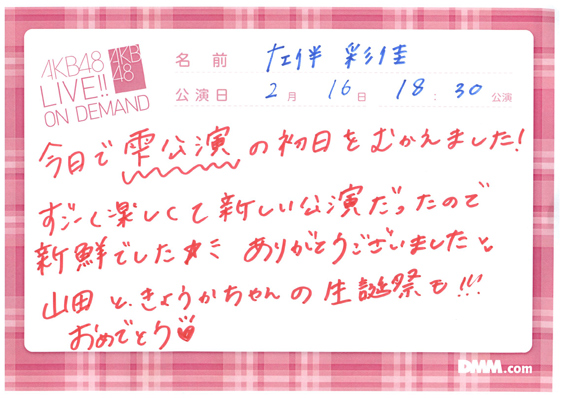 AKB48
LIVE!!
ON DEMAND
AKB
48
名前 左伴 彩佳
公演日 2月 16日 18:30 公演
今日で雫公演の初日をむかえました!
すごーく楽しくて新しい公演だったので
新鮮でした☆ミ ありがとうございましたと、
山田ときょうかちゃんの生誕祭も!!!
おめでとう♡
DMM.com